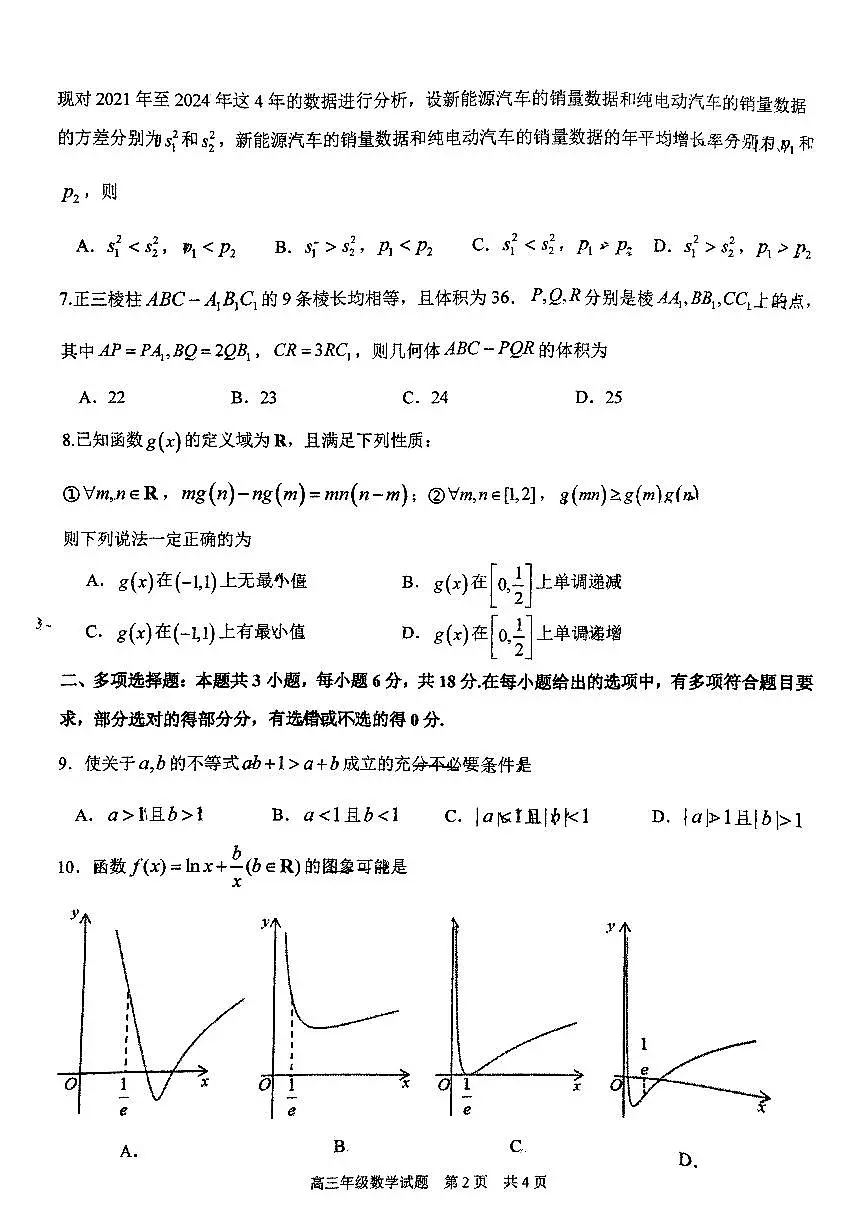 现对 2021 年至 2024 年这 4 年的数据进行分析，设新能源汽车的销量数据和纯电动汽车的销量数据
的方差分别为 s₁² 和 s₂²，新能源汽车的销量数据和纯电动汽车的销量数据的年平均增长率分别为 p₁ 和
p₂，则
A．s₁² < s₂²，p₁ < p₂ B．s₁² > s₂²，p₁ < p₂ C．s₁² < s₂²，p₁ > p₂ D．s₁² > s₂²，p₁ > p₂
7.正三棱柱 ABC − A₁B₁C₁ 的 9 条棱长均相等，且体积为 36． P,Q,R 分别是棱 AA₁,BB₁,CC₁ 上的点，
其中 AP = PA₁, BQ = 2QB₁， CR = 3RC₁，则几何体 ABC − PQR 的体积为
A．22 B．23 C．24 D．25
8.已知函数 g(x) 的定义域为 R，且满足下列性质：
①∀m,n∈R，mg(n)−ng(m)=mn(n−m)；②∀m,n∈[1,2]，g(mn)≥g(m)g(n)
则下列说法一定正确的为
A．g(x)在(−1,1)上无最小值 B．g(x)在[0,1/2]上单调递减
C．g(x)在(−1,1)上有最小值 D．g(x)在[0,1/2]上单调递增
二、多项选择题：本题共 3 小题，每小题 6 分，共 18 分.在每小题给出的选项中，有多项符合题目要
求，部分选对的得部分分，有选错或不选的得 0 分.
9．使关于 a,b 的不等式 ab+1>a+b 成立的充分不必要条件是
A．a>1且b>1 B．a<1且b<1 C．|a|<1且|b|<1 D．|a|>1且|b|>1
10．函数 f(x)=ln x+b/x(b∈R)的图象可能是
y O 1/e x
y O 1/e x
O 1/e x
y O 1/e x
A． B C D．
高三年级数学试题 第 2 页 共 4 页